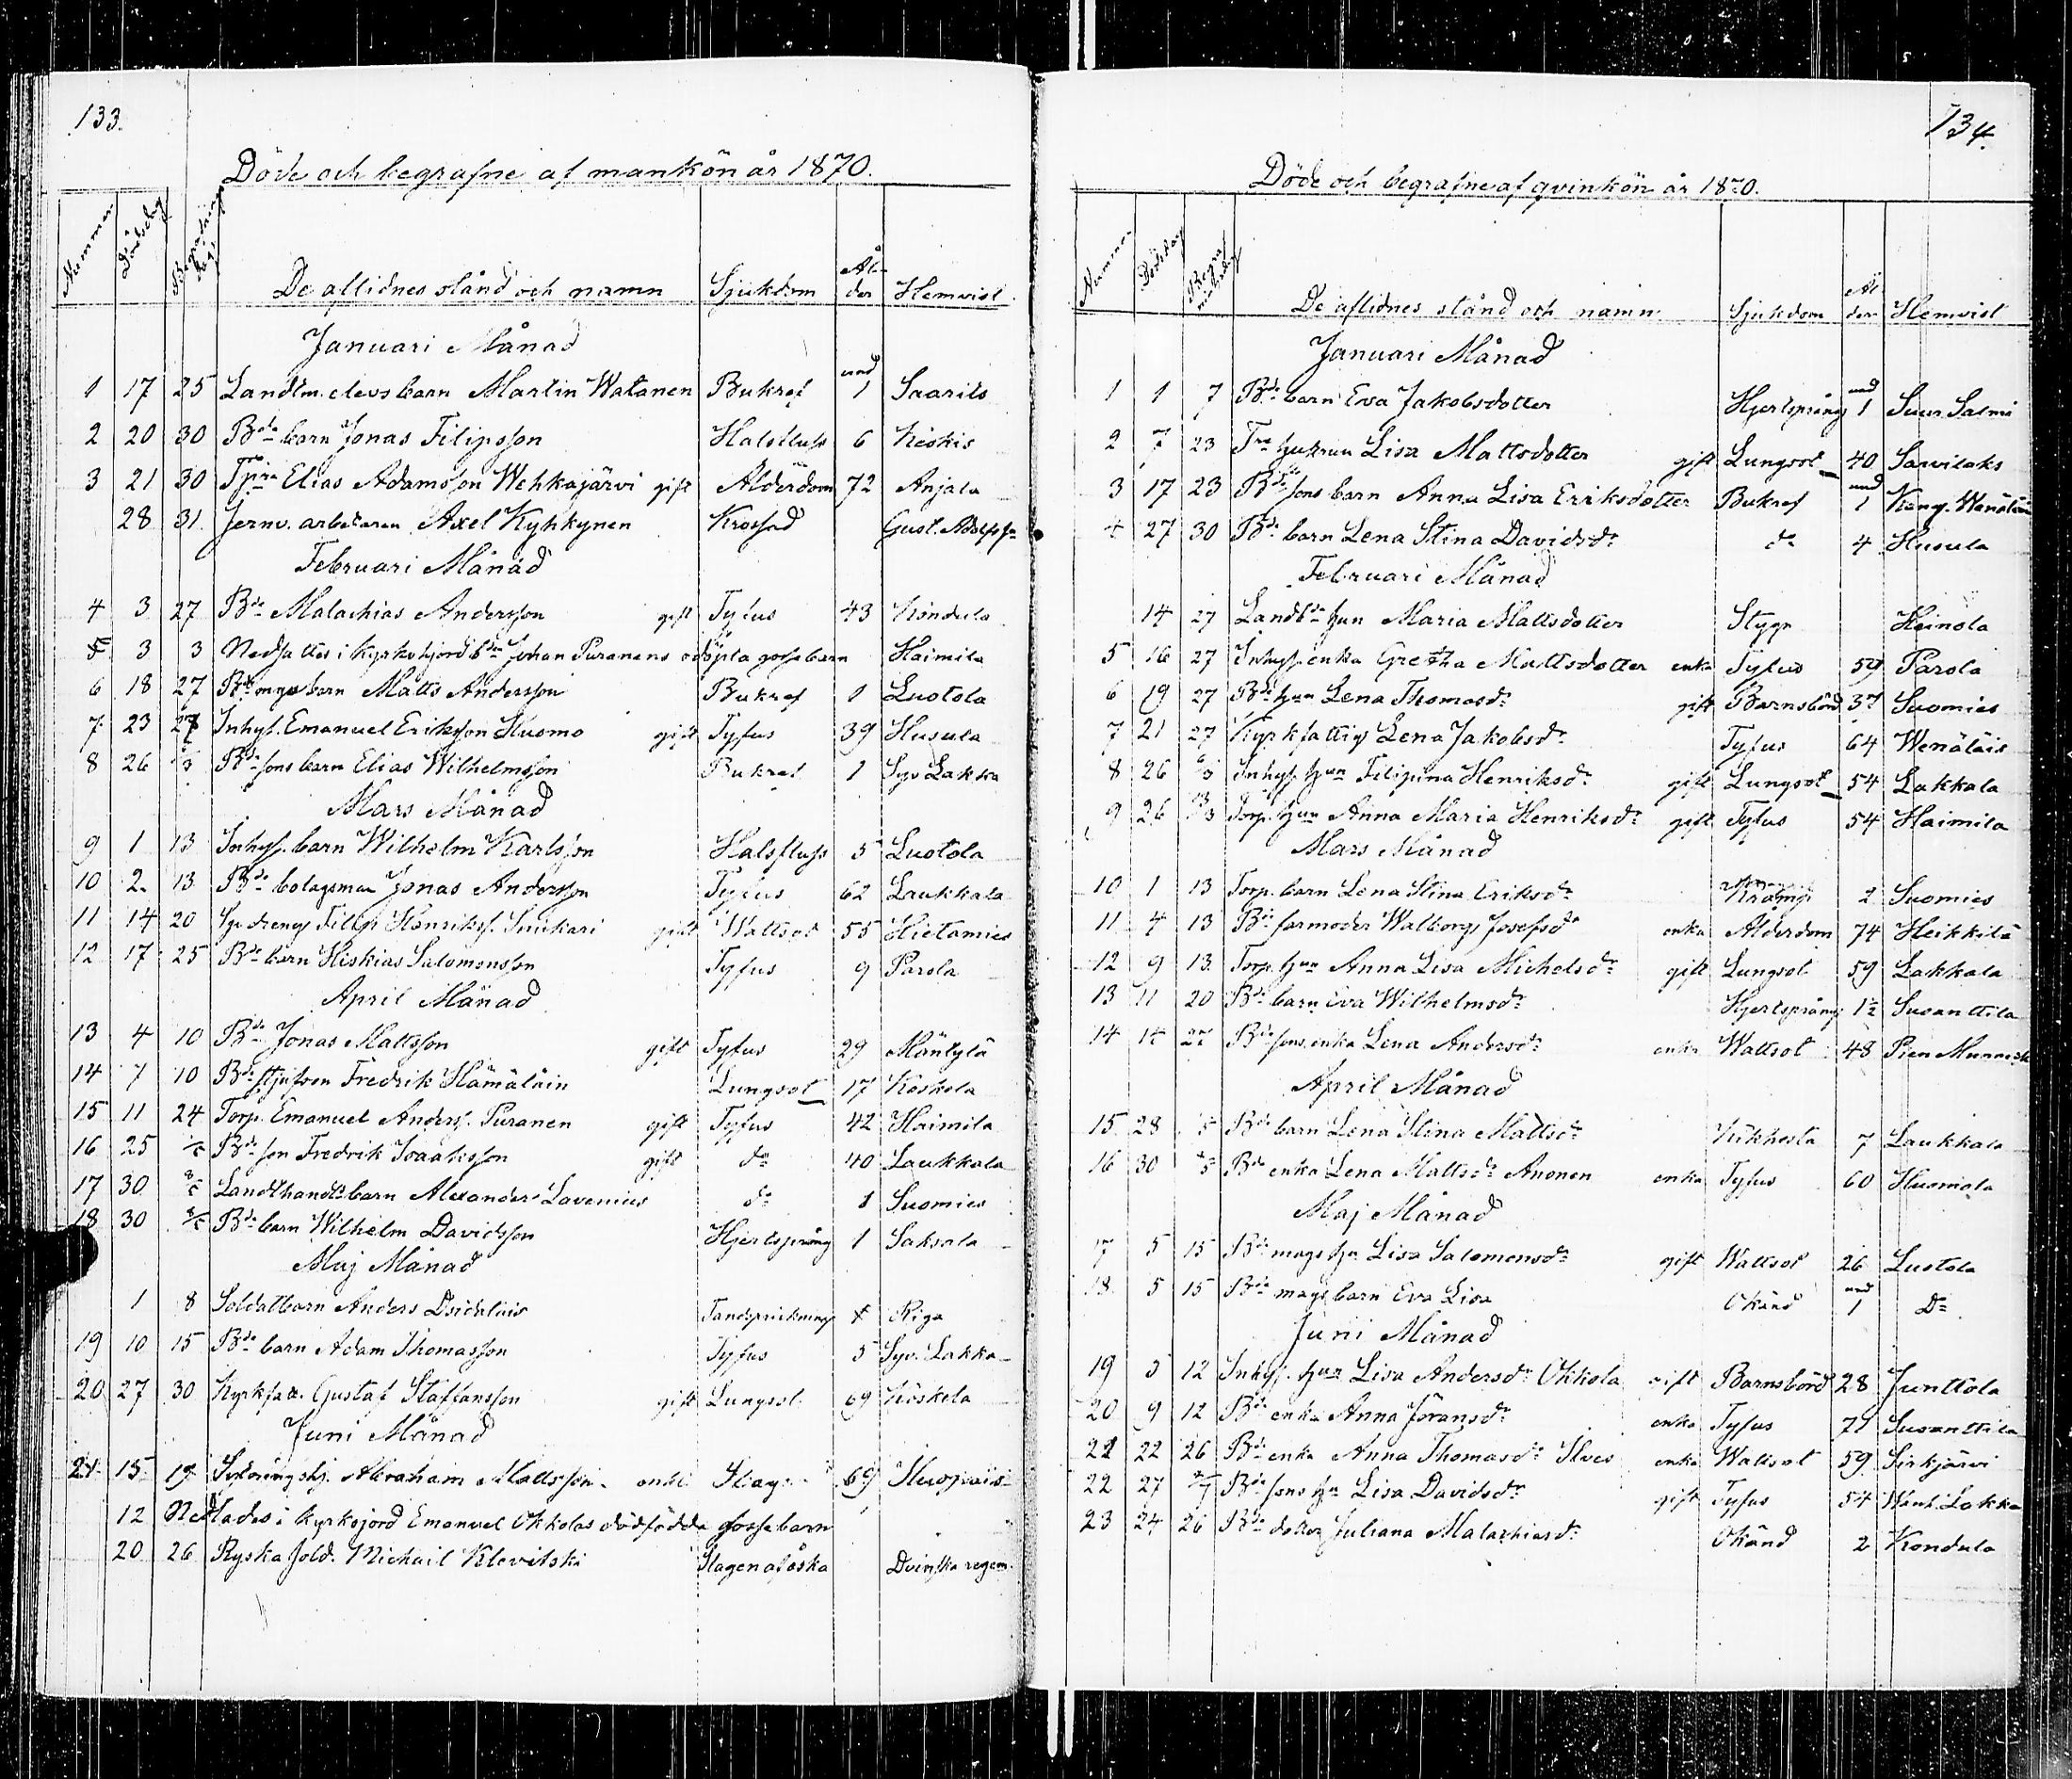 133.
Döde och begrafne af mankön år 1870.
Nummer Dödsdag Begrafningsdag De aflidnes stånd och namn Sjukdom Ålder Hemvist
Januari Månad
1 17 25 Landtm. elevs barn Martin Watanen Bukref 1 Saarits
2 20 30 Bde barn Jonas Filipsson Halsfluss 6 Keskis
3 21 30 Elias Adamsson Wehkajärvi gift Ålderdom 72 Anjala
28 31 Jernv. arbetaren Axel Kyhkynen Krossad Gust. Adolfs
Februari Månad
4 3 27 Bde Malachias Andersson gift Tyfus 43 Kondula
5 3 3 Nedsattes i kyrkojord bdn Johan Puranens odöpta gossebarn Haimila
6 18 27 barn Matts Andersson Bukref 1 Luotola
7 23 27 Inhys. Emanuel Eriksson Huomo gift Tyfus 39 Husula
8 26 Bde sons barn Elias Wilhelmsson Bukref 1 Syv. Lakka
Mars Månad
9 1 13 Inhys. barn Wilhelm Karlsson Halsfluss 5 Luotola
10 2 13 Bde bolagsman Jonas Andersson Tyfus 62 Laukkala
11 14 20 dreng Filip Henrikss. gift Wattsot 55 Hietamies
12 17 25 Bde barn Hiskias Salomonsson Tyfus 9 Parola
April Månad
13 4 10 Bde Jonas Mattsson gift Tyfus 29 Mäntylä
14 7 10 Bde styfson Fredrik Hämäläin Lungsot 17 Koskela
15 11 24 Torp. Emanuel Anderss. Puranen gift Tyfus 42 Haimila
16 25 Bde son Fredrik Isaaksson gift do 40 Laukkala
17 30 8/5 Landthandl. barn Alexander Lavenius do 1 Suomies
18 30 8/5 Bde barn Wilhelm Davidsson Hjertsprång 1 Saksala
Maj Månad
1 8 Soldatbarn Anders Tandsprickning Riga
19 10 15 Bde barn Adam Thomasson Tyfus 5 Syv. Lakka
20 27 30 Kyrkfatt. Gustaf Staffansson gift Lungsot 69 Koskela
Juni Månad
21 15 19 Abraham Mattsson enkl. 69
12 Nedlades i kyrkojord Emanuel Okkolas dödfödda gossebarn
20 26 Ryska sold. Michail Klevitski Slagen af åska Dvinska regem.
134.
Döde och begrafne af qvinkön år 1870.
Nummer Dödsdag Begrafningsdag De aflidnes stånd och namn Sjukdom Ålder Hemvist
Januari Månad
1 1 7 Bde barn Eva Jakobsdotter Hjertsprång 1 Suur. Salmi
2 7 23 hustrun Lisa Mattsdotter gift Lungsot 40 Sarvilaks
3 17 23 Bde sons barn Anna Lisa Eriksdotter Bukref 1 Wenäläin
4 27 30 Bde barn Lena Stina Davidsdr do 4 Husula
Februari Månad
14 27 Landbde hun Maria Mattsdotter Stygn Heinola
5 16 27 Inhys. enka Gretha Mattsdotter enka Tyfus 59 Parola
6 19 27 Bde hun Lena Thomasdr gift Barnsbörd 37 Suomies
7 21 27 Kyrkfattig Lena Jakobsdr Tyfus 64 Wenäläis
8 26 6/3 Inhys. hun Filipina Henriksdr gift Lungsot 54 Lakkala
9 26 13/3 Torp. hun Anna Maria Henriksdr gift Tyfus 54 Haimila
Mars Månad
10 1 13 Torp. barn Lena Stina Eriksdr Kramp 2 Suomies
11 4 13 Bde farmoder Walborg Josefsdr enka Ålderdom 74 Heikkilä
12 9 13 Torp. hun Anna Lisa Michelsdr gift Lungsot 59 Lakkala
13 11 20 Bde barn Eva Wilhelmsdr Hjertsprång 1½ Susanttila
14 14 27 Bde sons enka Lena Andersdr enka Wattsot 48 Pien
April Månad
15 28 Bde barn Lena Stina Mattsdr Kikhosta 7 Laukkala
16 30 Bde enka Lena Mattsdr Anonen enka Tyfus 60 Huomola
Maj Månad
17 5 15 Bde mags hu Lisa Salomonsdr gift Wattsot 26 Luotola
18 5 15 Bde mags barn Eva Lisa Okänd 1 Do
Juni Månad
19 5 12 Inhys. hun Lisa Andersdr Okkola gift Barnsbörd 28 Junttola
20 9 12 Bde enka Anna Göransdr enka Tyfus 71 Susanttila
21 22 26 Bde enka Anna Thomasdr Ilves enka Wattsot 59 Sirkjärvi
22 27 Bde sons hu Lisa Davidsdr gift Tyfus 54 Lakka
23 24 26 Bde dotter Juliana Malachiasdr Okänd 2 Kondula